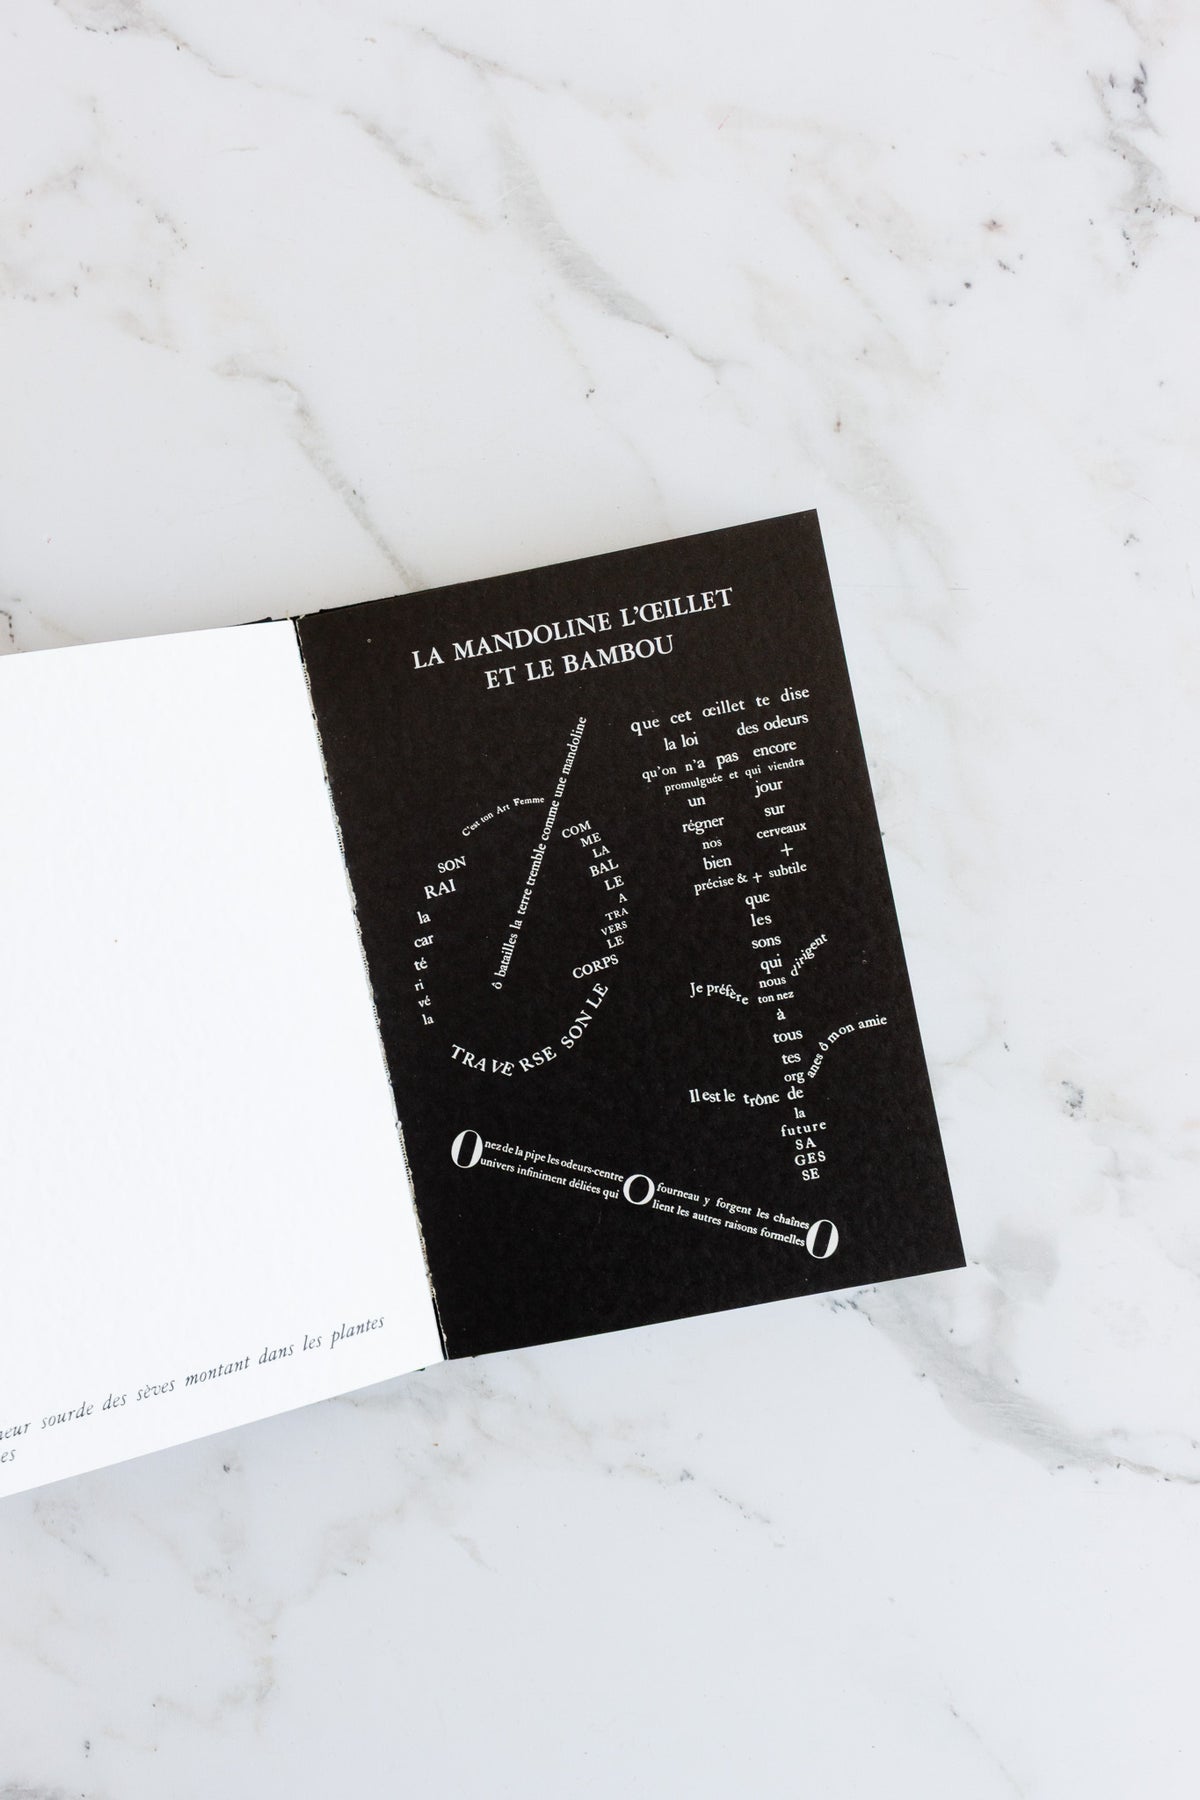 sourde des sèves montant dans les plantes
LA MANDOLINE L'ŒILLET
ET LE BAMBOU
ô batailles la terre tremble comme une mandoline
COM
ME
LA
BAL
LE
A
TRA
VERS
LE
CORPS
SON LE
TRAVE RSE
la
vé
ri
té
car
la
RAI
SON
C'est ton Art Femme
que cet œillet te dise
la loi des odeurs
qu'on n'a pas encore
promulguée et qui viendra
un jour
régner sur
nos cerveaux
bien +
précise & + subtile
que
les
sons
qui
nous dirigent
Je préfère ton nez
à
tous
tes
org anes ô mon amie
Il est le trône de
la
future
SA
GES
SE
O nez de la pipe les odeurs-centre O fourneau y forgent les chaînes O
univers infiniment déliées qui lient les autres raisons formelles